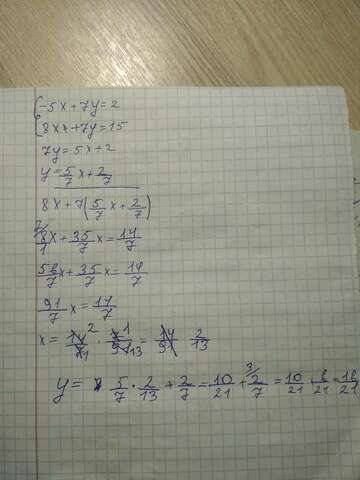 {-5x+7y=2
{8x+7y=15
7y=5x+2
y=5/7x+2/7
8x+7(5/7x+2/7)
8/1x+35/7x=14/7
56/7x+35/7x=14/7
91/7x=14/7
x=14/7·7/91=14/91 2/13
y= 5/7·2/13+2/7=10/21+2/7=10/21 6/21=16/21